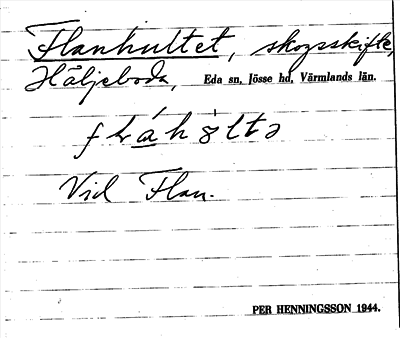 Flanhultet, skogsskifte,
Häljeboda, Eda sn, Jösse hd, Värmlands län.
Vid Flan.
PER HENNINGSSON 1944.